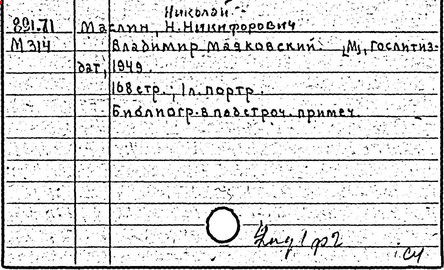 Николай
891.71 Маслин, Н. Никифорович
М314 Владимир Маяковский. [М], Гослитиз-
дат, 1949.
168 стр., 1 л. портр.
Библиогр. в подстроч. примеч.